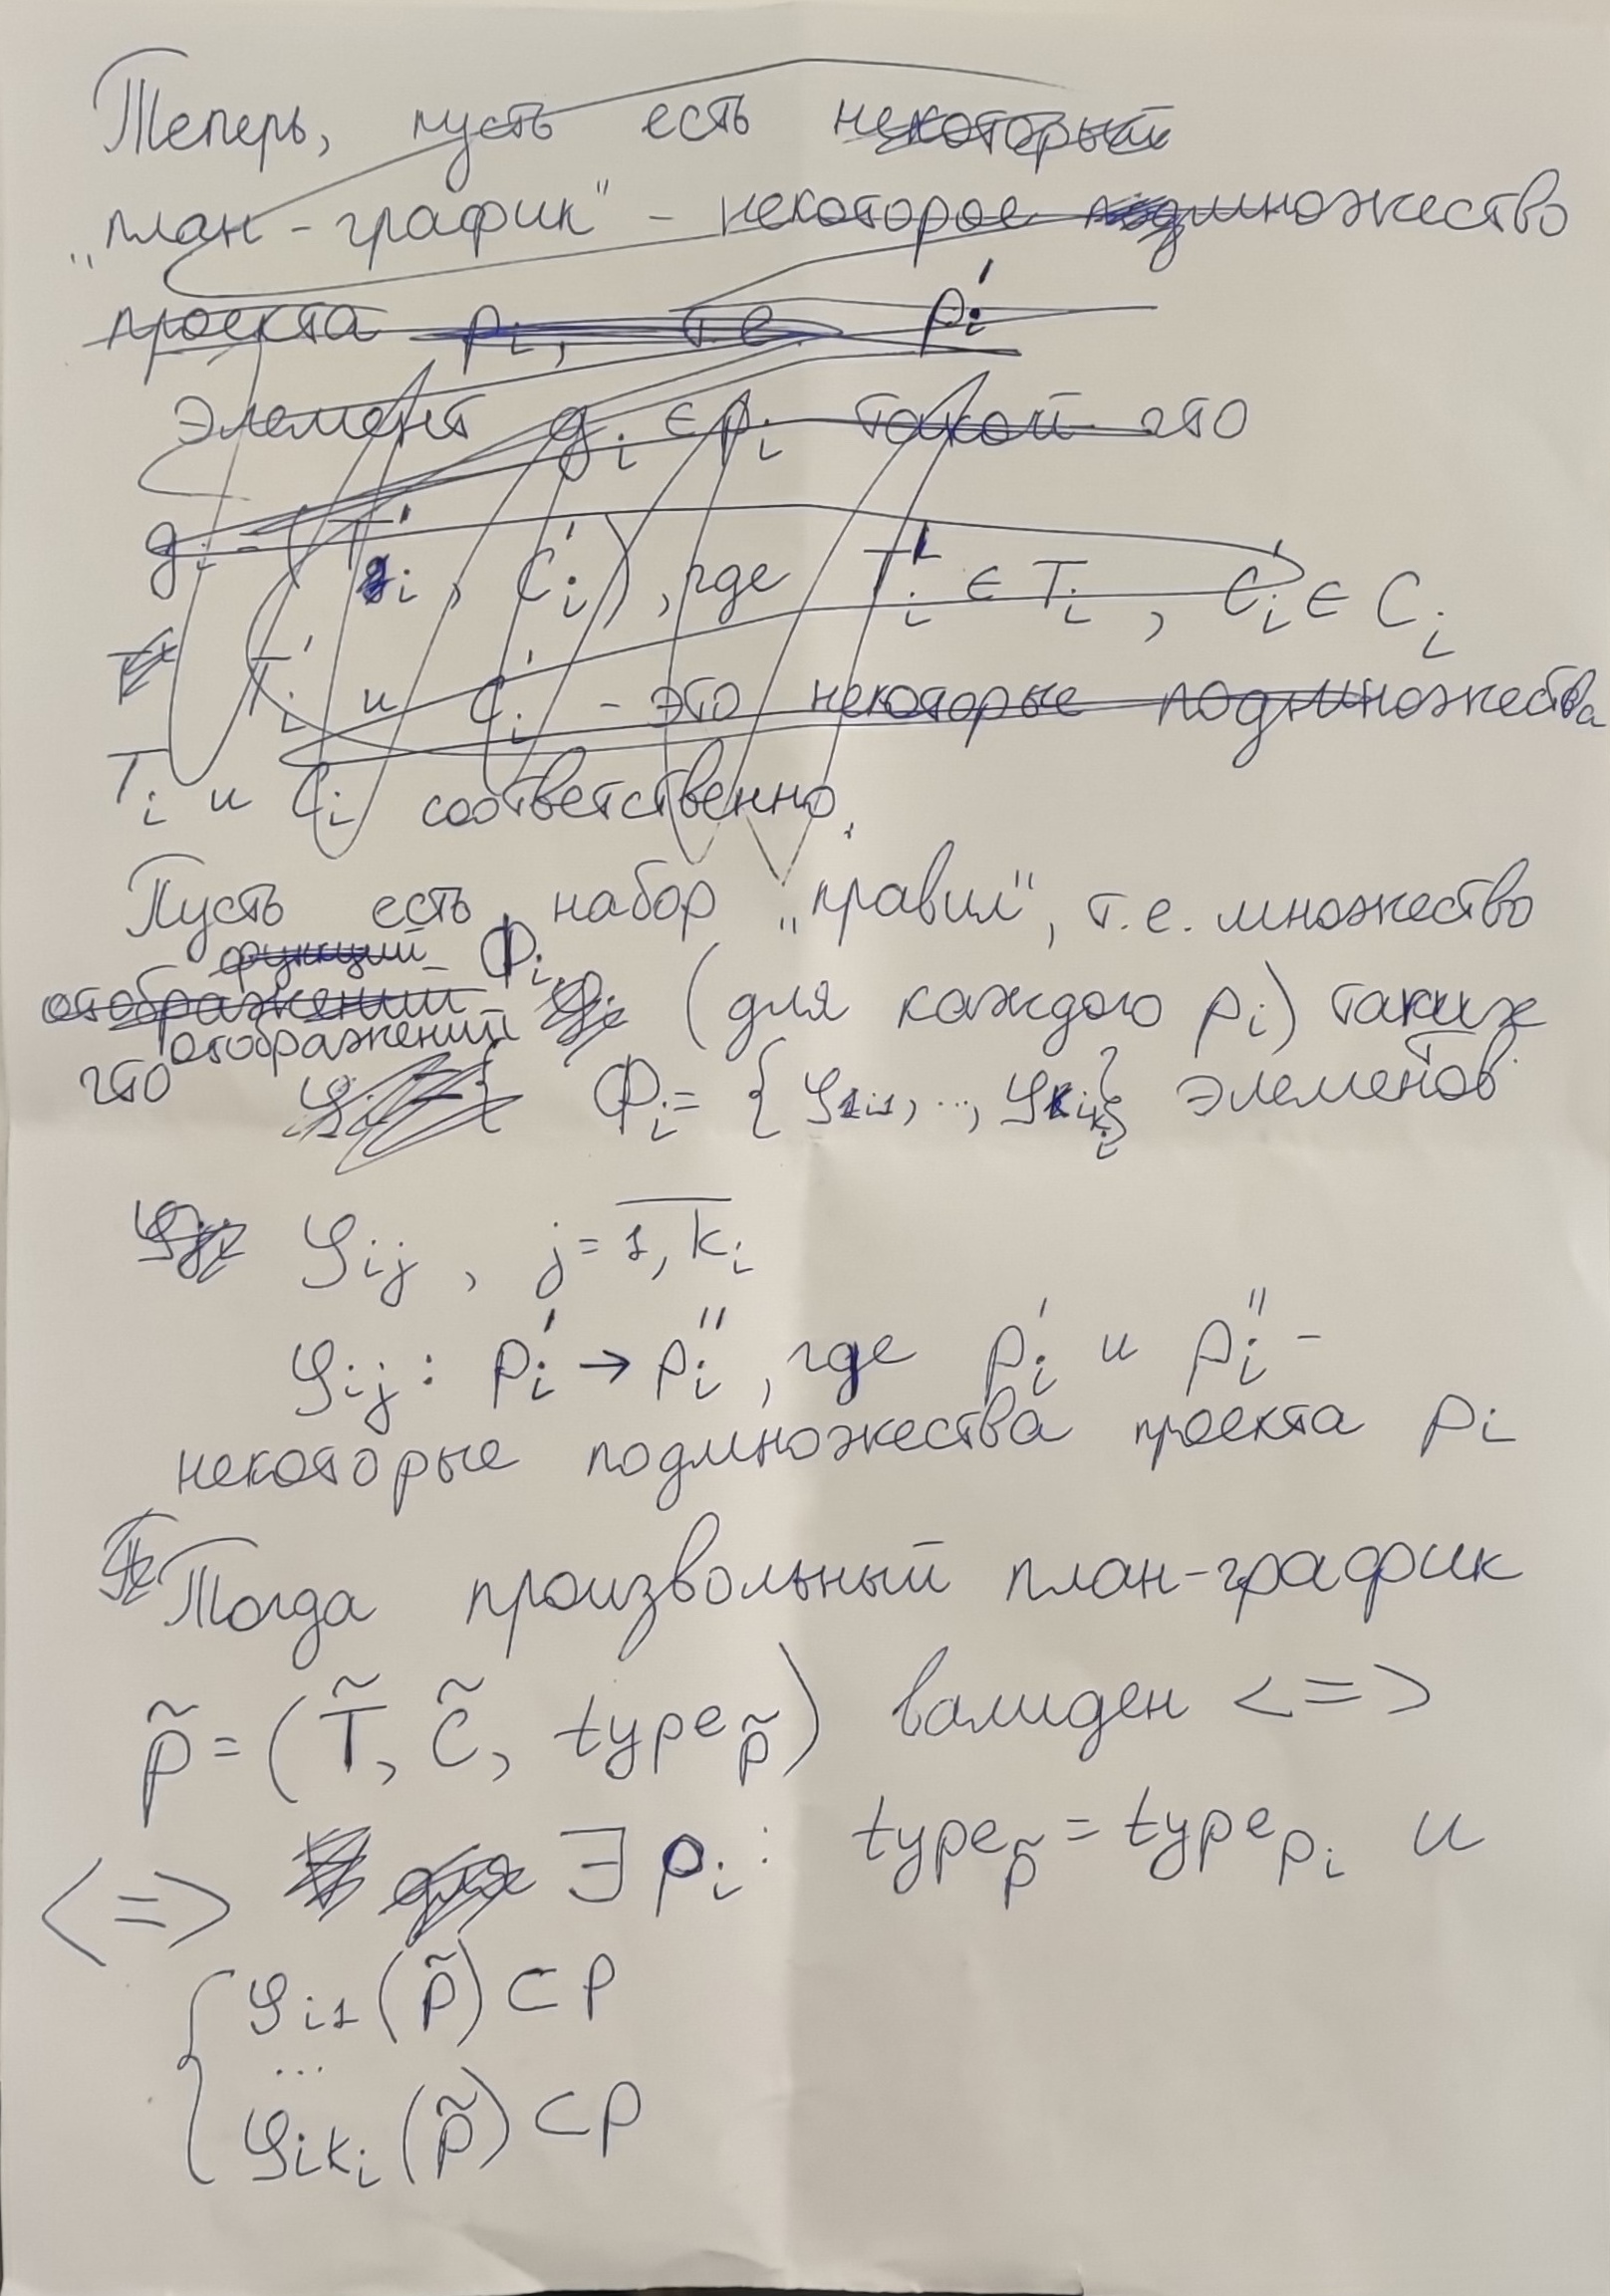 Теперь, пусть есть некоторый
„план-график" - некоторое подмножество
проекта pᵢ, т.е. pᵢ'
Элемент gᵢ ∈ pᵢ такой что
gᵢ = (Tᵢ', Cᵢ'), где Tᵢ' ∈ Tᵢ, Cᵢ' ∈ Cᵢ
Tᵢ' и Cᵢ' - это некоторые подмножества
Tᵢ и Cᵢ соответственно.
Пусть есть набор „правил", т.е. множество
функций Φᵢ
отображений (для каждого pᵢ) таких
отображений
что Φᵢ = {φᵢ₁, ..., φᵢₖᵢ} элементов
φᵢⱼ, j = 1, kᵢ
φᵢⱼ: pᵢ' → pᵢ'', где pᵢ' и pᵢ'' -
некоторые подмножества проекта pᵢ
Тогда произвольный план-график
p̃ = (T̃, C̃, type_p̃) валиден <=>
<=> ∃ pᵢ: type_p̃ = type_pᵢ и
{ φᵢ₁(p̃) ⊂ p
...
φᵢₖᵢ(p̃) ⊂ p